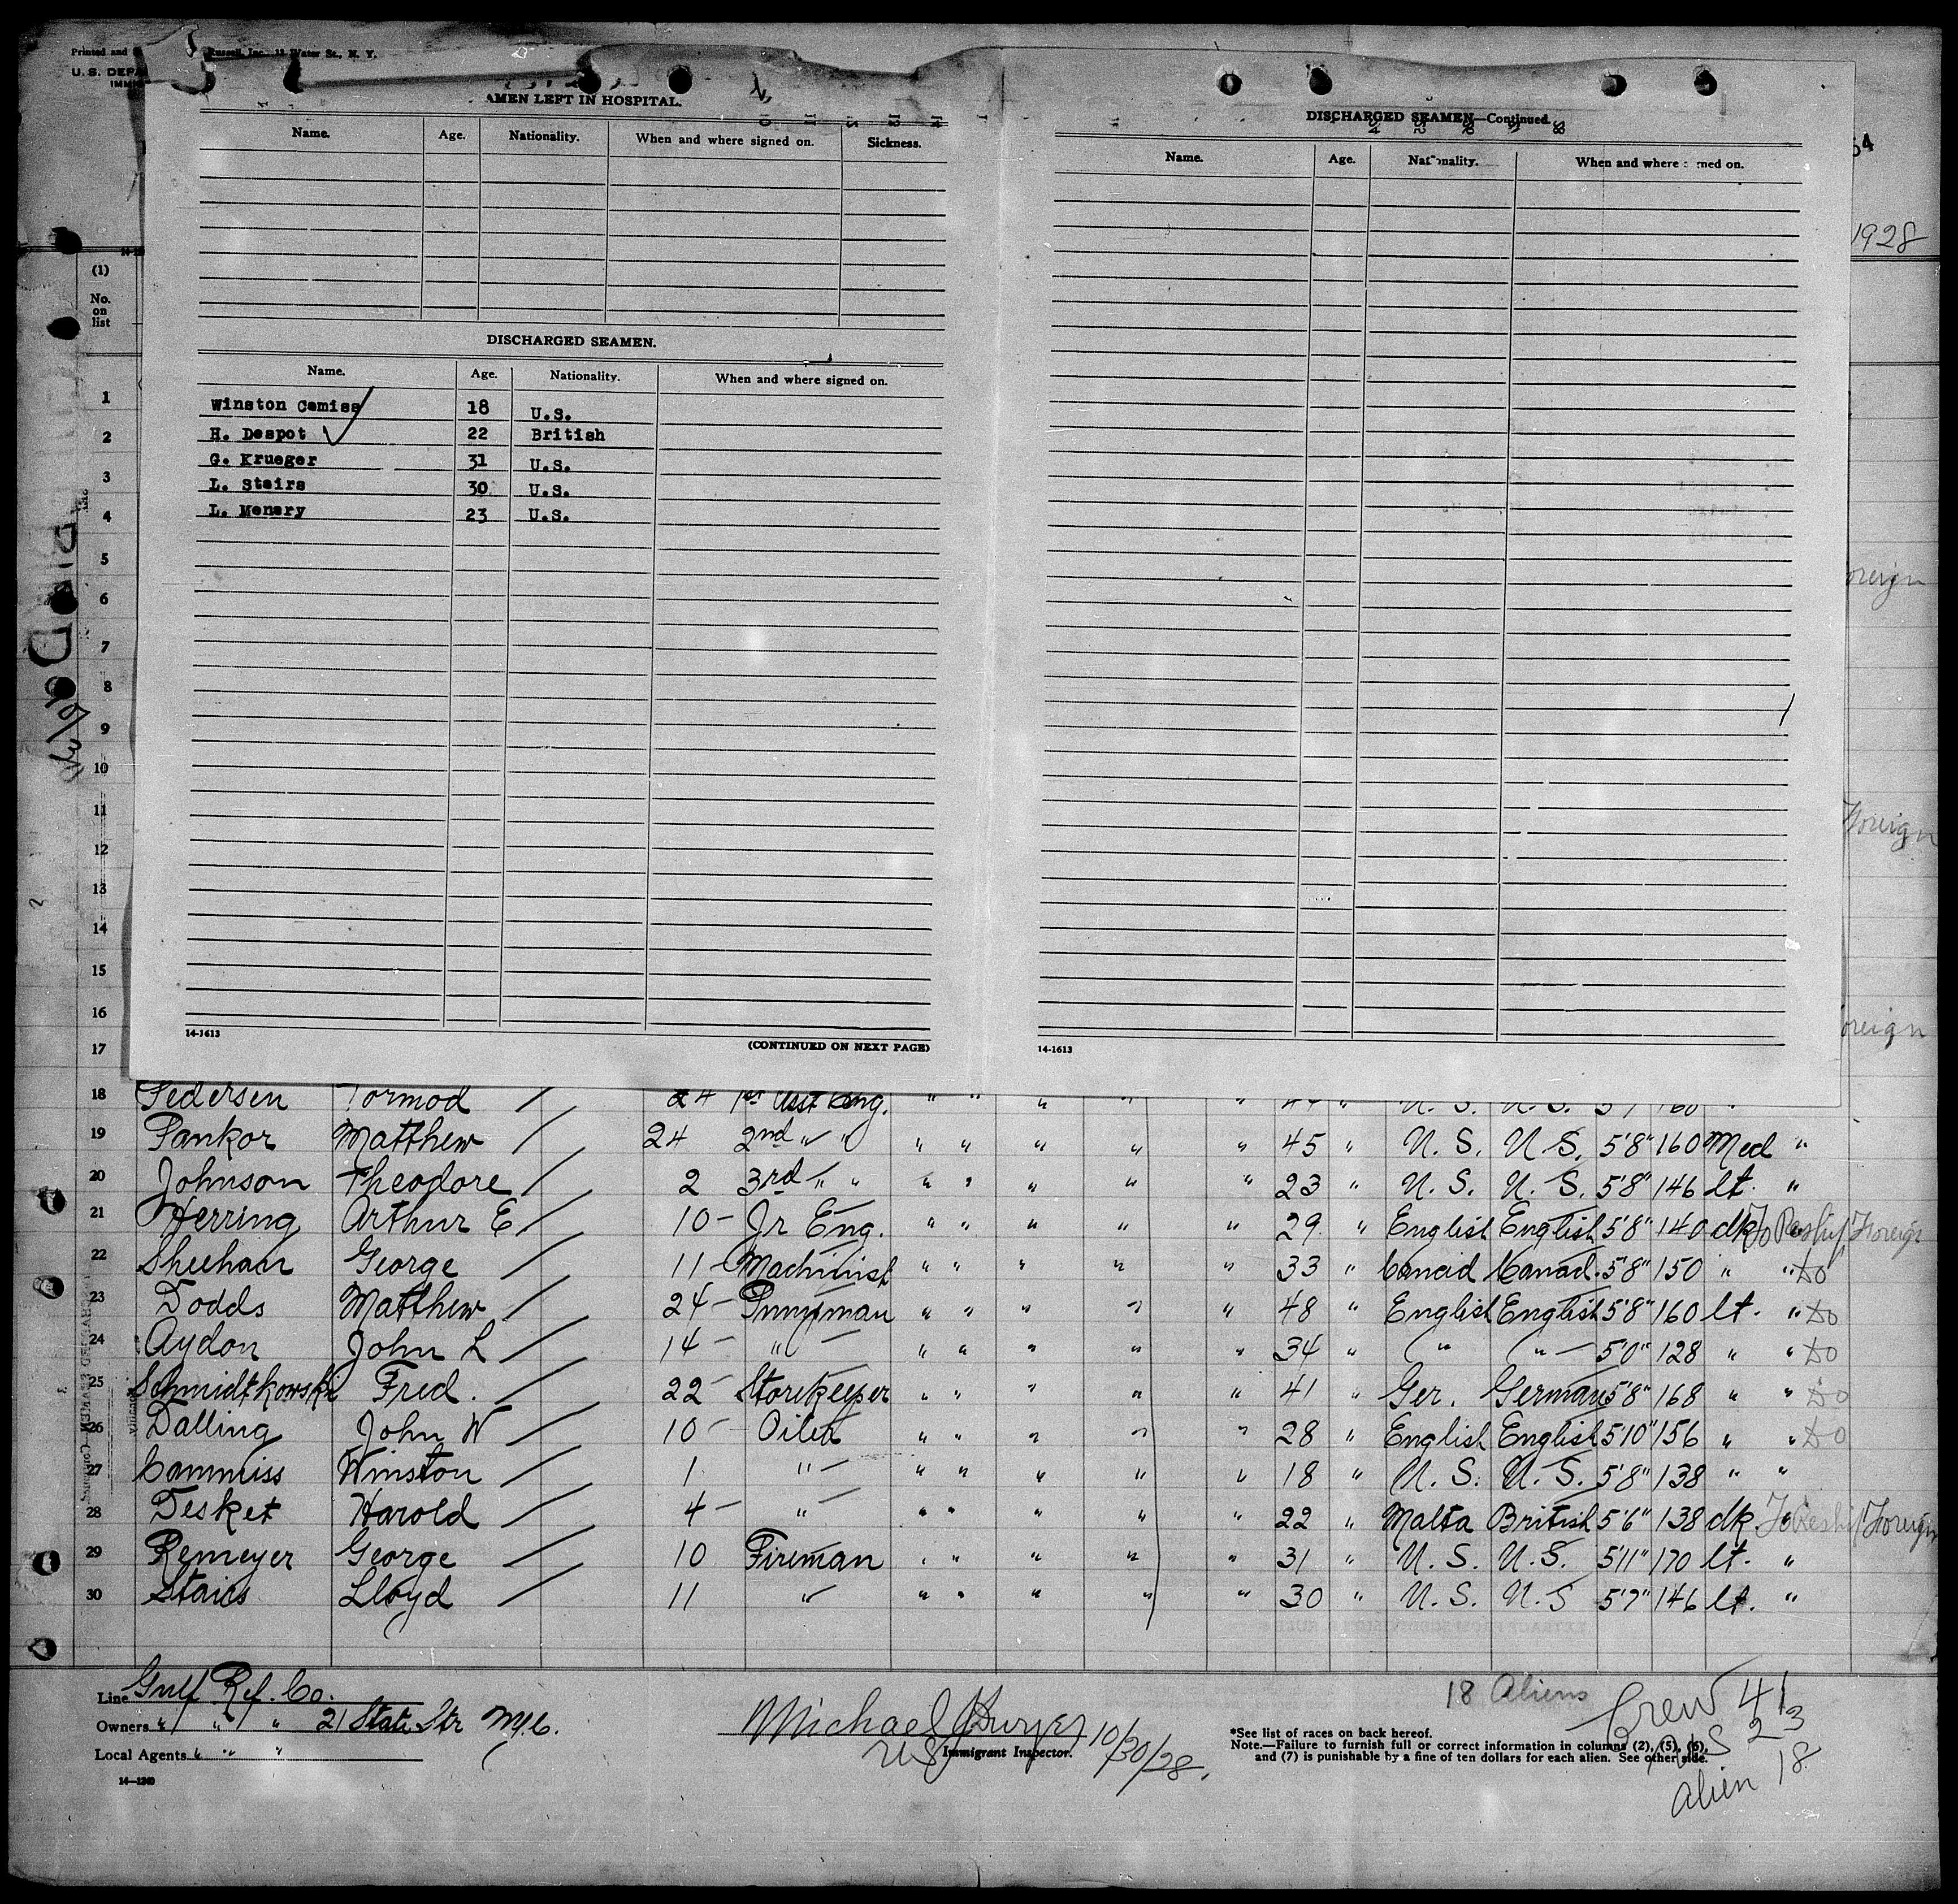 Printed and
Russell, Inc., 12 Water St., N. Y.
U. S. DEPA
IMMI
AMEN LEFT IN HOSPITAL.
Name. Age. Nationality. When and where signed on. Sickness.
DISCHARGED SEAMEN.
Name. Age. Nationality. When and where signed on.
Winston Camiss 18 U.S.
H. Despot 22 British
G. Krueger 31 U.S.
L. Stairs 30 U.S.
L. Menary 23 U.S.
14-1613
(CONTINUED ON NEXT PAGE)
DISCHARGED SEAMEN—Continued.
Name. Age. Nationality. When and where signed on.
14-1613
1928
oreign
Foreign
oreign
(1)
No. on list
1
2
3
4
5
6
7
8
9
10
11
12
13
14
15
16
17
18 Pedersen Tormod / 24 1st Asst Eng. " " " " " " U. S. U. S. 5'7 160 "
19 Pankor Matthew / 24 2nd " " " " " " " 45 " U. S. U. S. 5'8" 160 Med "
20 Johnson Theodore / 2 3rd " " " " " " " 23 " U. S. U. S. 5'8" 146 lt. "
21 Herring Arthur E / 10 - Jr Eng. " " " " " 29 " English English 5'8" 140 dk To Reship Foreign
22 Sheehan George / 11 - Machinist " " " " " 33 " Canad Canad. 5'8" 150 " " Do
23 Dodds Matthew / 24 - Pumpman " " " " " 48 " English English 5'8" 160 lt. " Do
24 Aydon John L / 14 - " " " " " " 34 " " " 5'0" 128 " " Do
25 Schmidtkowski Fred. / 22 - Storekeeper " " " " " 41 " Ger. German 5'8" 168 " " Do
26 Dalling John W / 10 - Oiler " " " " " 28 " English English 5'10" 156 " " Do
27 Cammiss Winston / 1 " " " " " " 18 " U. S. U. S. 5'8" 138 " "
28 Desket Harold / 4 - " " " " " " 22 " Malta British 5'6" 138 dk. " To Reship Foreign
29 Remeyer George / 10 Fireman " " " " " 31 " U. S. U. S. 5'11" 170 lt. "
30 Stairs Lloyd / 11 " " " " " " 30 " U. S. U. S 5'7" 146 lt. "
Line Gulf Ref. Co.
Owners " " " 21 State Str N.Y.C.
Local Agents " " "
14—1240
Michael Dwyer 10/30/28.
US Immigrant Inspector.
18 Aliens
Crew 41
US 23
Alien 18
*See list of races on back hereof.
Note.—Failure to furnish full or correct information in columns (2), (5), (6),
and (7) is punishable by a fine of ten dollars for each alien. See other side.